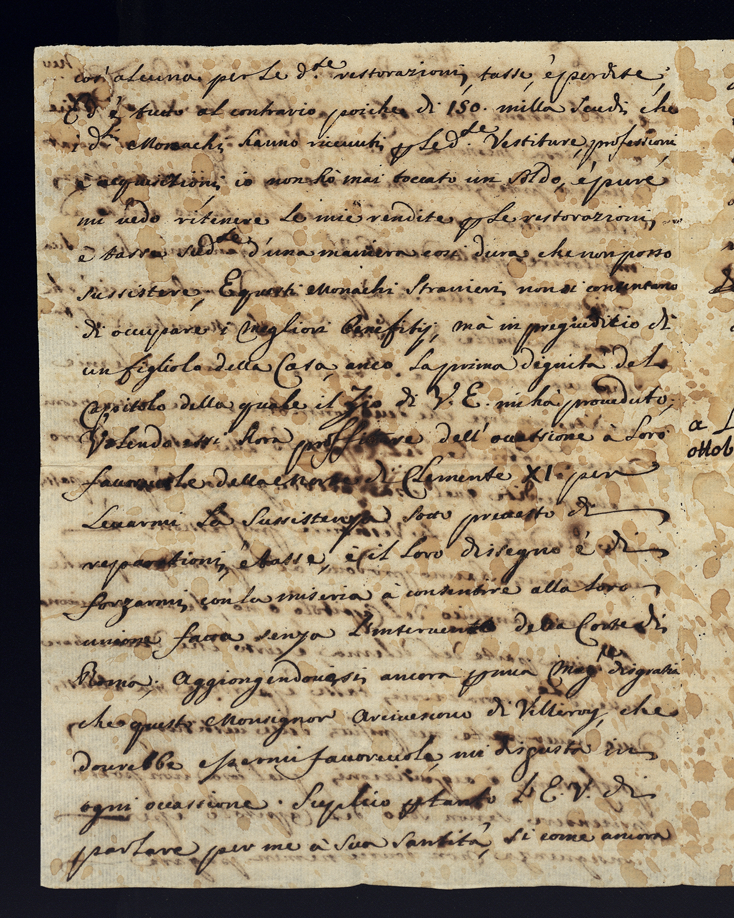 cos' alcuna per le d.te restorazioni, tasse, é perdite
Ed é tutto al contrario poiche di 150. milla scudi che
i d.ti Monachi hanno ricevuti p le d.te Vestiture, professioni
e acquisitioni, io non hò mai toccato un soldo, é puré
mi vedo ritenere le mie rendite p le restorazioni,
e tasse sud.te d'una maniera così dura che non posso
sussistere, E questi Monachi Stranieri, non si contentano
di occupare i megliori benefitij, mà in pregiuditio di
un figliolo della Casa anco la prima dignità del
Capitolo della quale il Zio di V. E. mi ha proveduto,
Volendo essi hora proffittare dell' ouassione à loro
favorevole della Morte di Clemente XI per
Levarmi la sussistenza, sotto pretesto di
reparationi, é tasse, é il loro disegno é di
forzarmi, con la miseria à consentire alla loro
unione fatta senza l'intervento della Corte di
Roma; Aggiongendovisi ancora p mia mag.re disgratia
che questo Monsignor Arcivescovo di Villeroy, che
dovrebbe essermi favorevole, mi disgusta in
ogni ouassione. Suplico p tanto L'E. V. di
parlare per me à Sua Santità, si come ancora
a
ottob